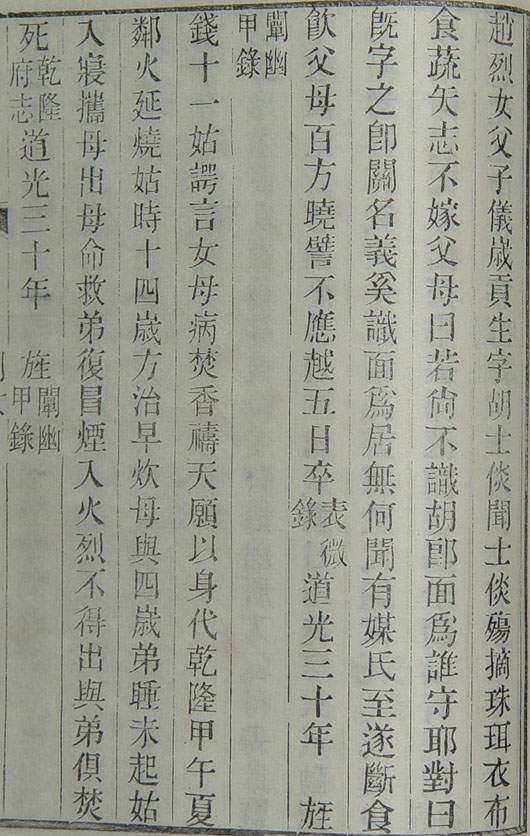 趙烈女父子儀歲貢生字胡士倓聞士倓殤摘珠珥衣布
食蔬矢志不嫁父母曰若尙不識胡郎面爲誰守耶對曰
旣字之卽關名義奚識面爲居無何聞有媒氏至遂斷食
飮父母百方曉譬不應越五日卒表微錄道光三十年 旌
闡幽甲錄
錢十一姑諤言女母病焚香禱天願以身代乾隆甲午夏
鄰火延燒姑時十四歲方治早炊母與四歲弟睡未起姑
入寢攜母出母命救弟復冒煙入火烈不得出與弟俱焚
死乾隆府志道光三十年 旌闡幽甲錄